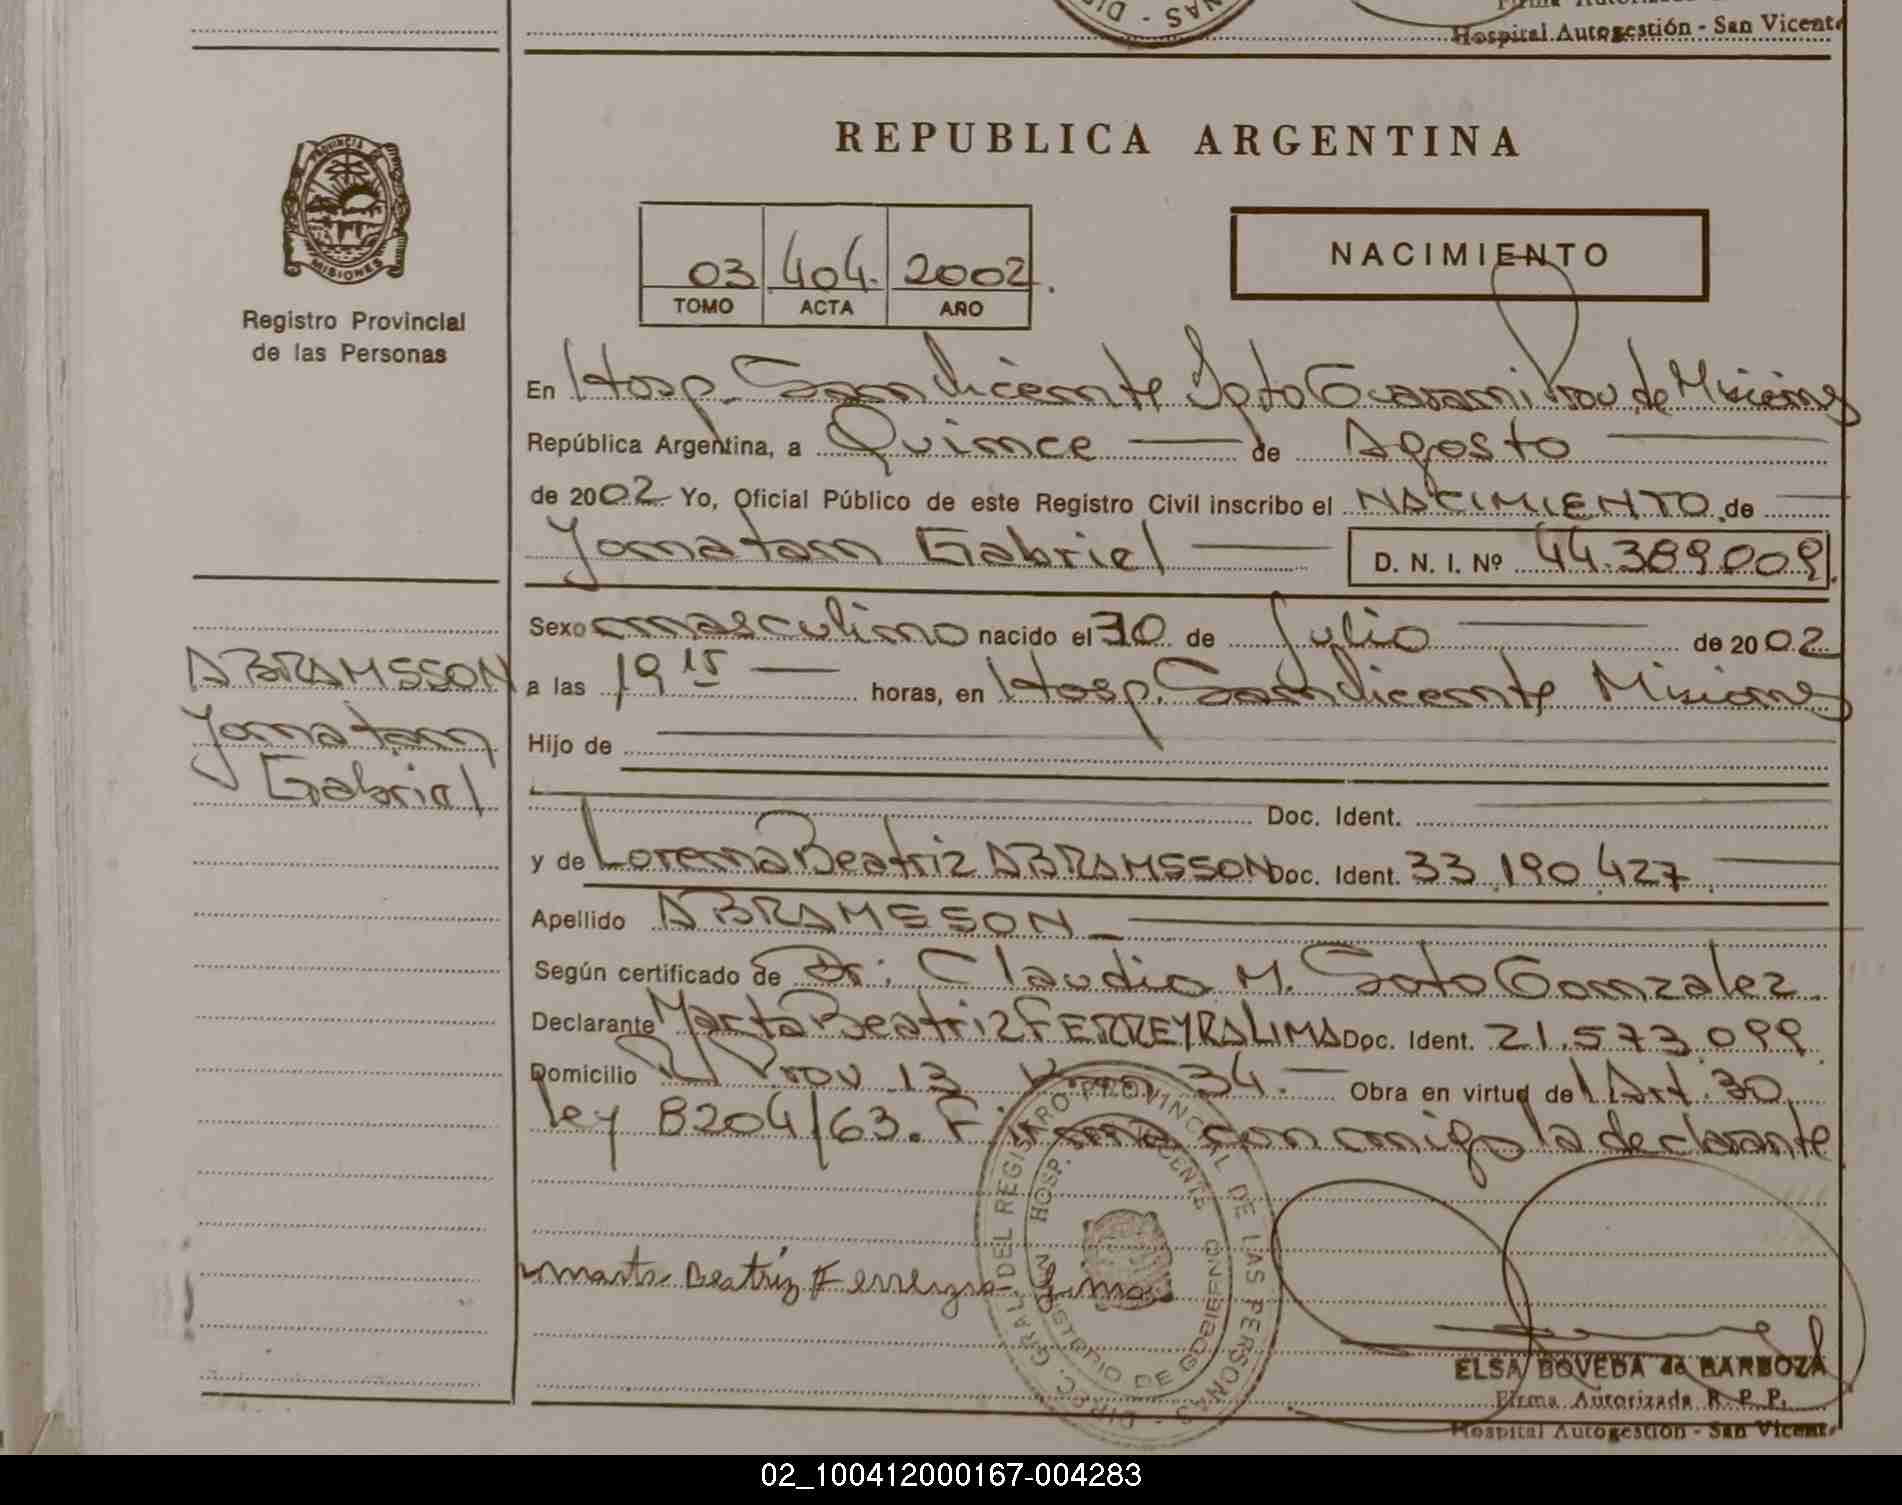 Firma Autorizada
Hospital Autogestión - San Vicente
REPUBLICA ARGENTINA
PROVINCIA DE
MISIONES
Registro Provincial
de las Personas
03 404. 2002.
TOMO ACTA AÑO
NACIMIENTO
En Hosp. San Vicente Dpto Guarani Prov de Misiones
República Argentina, a Quince de Agosto
de 2002 Yo, Oficial Público de este Registro Civil inscribo el NACIMIENTO de
Yonatan Gabriel D. N. I. Nº 44.389.009.
Sexo masculino nacido el 30 de Julio de 2002
ABRAMSSON
Yonatan
Gabriel
a las 19 15 horas, en Hosp. San Vicente Misiones
Hijo de
Doc. Ident.
y de Lorena Beatriz ABRAMSSON Doc. Ident. 33.190.427.
Apellido ABRAMSSON
Según certificado de Dr: Claudio M. Soto Gonzalez.
Declarante Marta Beatriz FERREYRA LIMA Doc. Ident. 21.573.099
Domicilio R Prov 13 Km 34. Obra en virtud del Art. 30
ley 8204/63. Firma conmigo la declarante
marta Beatriz Ferreyra Lima
DIREC. GRAL. DEL REGISTRO PROVINCIAL DE LAS PERSONAS
HOSP. SAN VICENTE
MINISTERIO DE GOBIERNO
ELSA BOVEDA de BARBOZA
Firma Autorizada R. P. P.
Hospital Autogestión - San Vicente
02_100412000167-004283